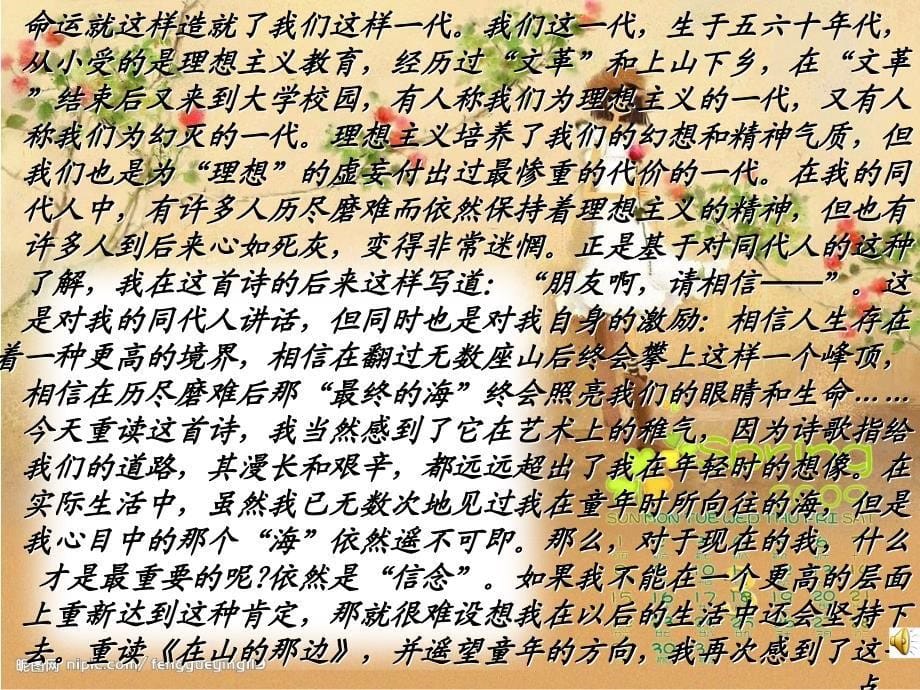 命运就这样造就了我们这样一代。我们这一代，生于五六十年代，
从小受的是理想主义教育，经历过“文革”和上山下乡，在“文革
”结束后又来到大学校园，有人称我们为理想主义的一代，又有人
称我们为幻灭的一代。理想主义培养了我们的幻想和精神气质，但
我们也是为“理想”的虚妄付出过最惨重的代价的一代。在我的同
代人中，有许多人历尽磨难而依然保持着理想主义的精神，但也有
许多人到后来心如死灰，变得非常迷惘。正是基于对同代人的这种
了解，我在这首诗的后来这样写道：“朋友啊，请相信——”。这
是对我的同代人讲话，但同时也是对我自身的激励：相信人生存在
着一种更高的境界，相信在翻过无数座山后终会攀上这样一个峰顶，
相信在历尽磨难后那“最终的海”终会照亮我们的眼睛和生命……
今天重读这首诗，我当然感到了它在艺术上的稚气，因为诗歌指给
我们的道路，其漫长和艰辛，都远远超出了我在年轻时的想像。在
实际生活中，虽然我已无数次地见过我在童年时所向往的海，但是
我心目中的那个“海”依然遥不可即。那么，对于现在的我，什么
才是最重要的呢?依然是“信念”。如果我不能在一个更高的层面
上重新达到这种肯定，那就很难设想我在以后的生活中还会坚持下
去。重读《在山的那边》，并遥望童年的方向，我再次感到了这一
点
Spring
2009
SUN MON TUE WED THU FRI SAT
昵图网 nipic.com/